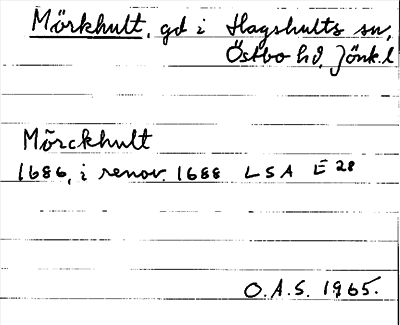 Mörkhult, gd i Hagshults sn,
Östbo hd, Jönk. l
Mörckhult
1686, i renov. 1688 LSA E 28
O.A.S. 1965.